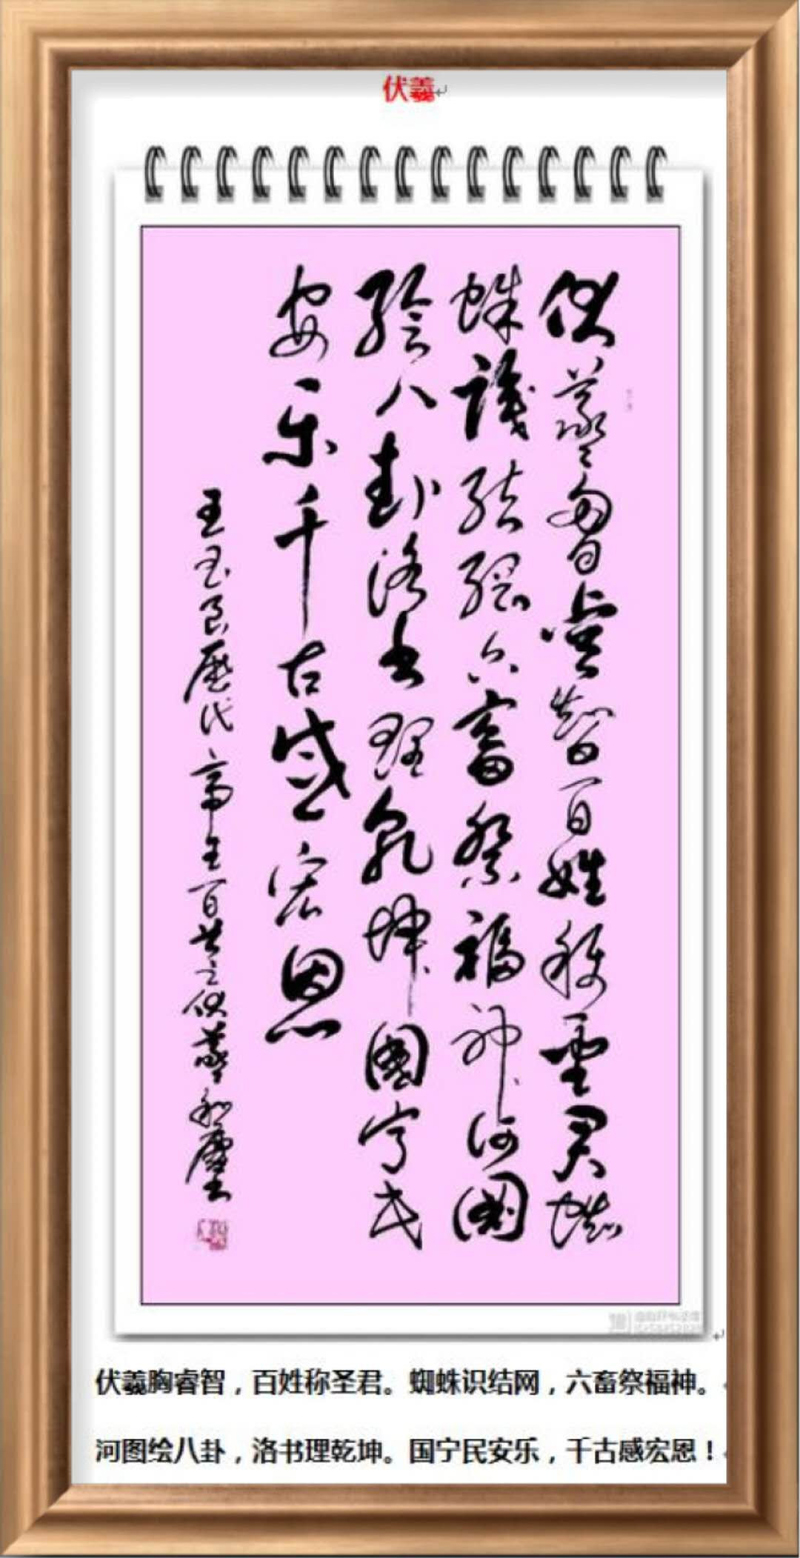 伏羲
伏羲胷睿智百姓称聖君蜘
蛛識結網六畜祭福神河圖
繪八卦洛书理乾坤國宁民
安乐千古感宏恩
王国良歷代帝王百首之伏羲
伏羲胸睿智，百姓称圣君。蜘蛛识结网，六畜祭福神。
河图绘八卦，洛书理乾坤。国宁民安乐，千古感宏恩！